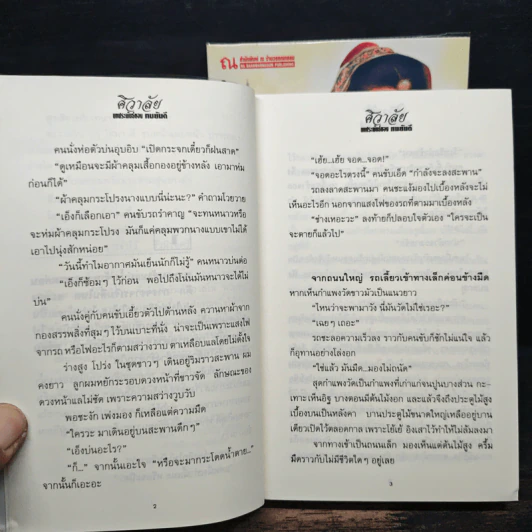 ณ
สำนักพิมพ์ ณ บ้านวรรณกรรม
NA BANNWANNAGUM PUBLISHING
ศิวาลัย
เพราะเพียง ทมยันตี
คนนั่งห่อตัวบ่นอุบอิบ "เปิดกระจกเดี๋ยวก็ฝนสาด"
"ดูเหมือนจะมีผ้าคลุมเสื้อกองอยู่ข้างหลัง เอามาห่ม
ก่อนก็ได้"
"ผ้าคลุมกระโปรงนางแบบนี่น่ะนะ?" คำถามโวยวาย
"เอ็งก็เลือกเอา" คนขับรถว่าคาญ "จะทนหนาวหรือ
จะห่มผ้าคลุมกระโปรง มันก็แค่คลุมพวกนางแบบเขาไม่ได้
เอาไปนุ่งสักหน่อย"
"วันนี้ทำไมอากาศมันเย็นนักก็ไม่รู้" คนหนาวบ่นต่อ
"เอ็งก็ซ้อมๆ ไว้ก่อน พอไปถึงโน่นมันหนาวจะได้ไม่
บ่น"
คนนั่งคู่กับคนขับเอี้ยวตัวไปด้านหลัง ควานหาผ้าจาก
กองสรรพสิ่งที่สุมๆ ไว้บนเบาะที่นั่ง น่าจะเป็นเพราะแสงไฟ
จากรถ หรือไฟอะไรก็ตามสว่างวาบ ตาเหลือบแลโดยไม่ตั้งใจ
ร่างสูง โปร่ง ในชุดขาวๆ เดินอยู่ริมราวสะพาน ผม
คงยาว ลูกผมหยักระรอบดวงหน้าที่ขาวจัด ลักษณะของ
ดวงหน้าแลไม่ชัด เพราะความสว่างวูบวับ
พอชะงัก เพ่งมอง ก็เหลือแต่ความมืด
"ใครวะ มาเดินอยู่บนสะพานดึกๆ"
"เอ็งบ่นอะไร?"
"ก็..." จากนั้นเอะใจ "หรือจะมากระโดดน้ำตาย..."
จากนั้นก็เอะอะ
2
ศิวาลัย
เพราะเพียง ทมยันตี
"เฮ้ย...เฮ้ย จอด...จอด!"
"จอดอะไรตรงนี้" คนขับเอ็ด "กำลังจะลงสะพาน"
รถลงลาดสะพานมา คนชะแง้มองไปเบื้องหลังจะไม่
เห็นอะไรอีก นอกจากแสงไฟของรถที่ตามมาเบื้องหลัง
"ช่างเหอะวะ" ลงท้ายก็ปลอบใจตัวเอง "ใครจะเป็น
จะตายก็แล้วไป"
จากถนนใหญ่ รถเลี้ยวเข้าทางเล็กค่อนข้างมืด
หากเห็นกำแพงวัดขาวมัวเป็นแนวยาว
"ไหนว่าจะพามาวัง นี่มันวัดไม่ใช่เรอะ?"
"เนยๆ เถอะ"
รถชะลอความเร็วลง ราวกับคนขับก็ชักไม่แน่ใจ แล้ว
ก็อุทานอย่างโล่งอก
"ใช่แล้ว มันมืด...มองไม่ถนัด"
สุดกำแพงวัดเป็นกำแพงที่เก่าแก่จนปูนบางส่วน กะ-
เทาะเห็นอิฐ บางตอนมีต้นไม้งอก และแล้วจึงถึงประตูไม้สูง
เบื้องบนเป็นหลังคา บานประตูไม้ขนาดใหญ่เหลืออยู่บาน
เดียวเปิดไว้ตลอดกาล เพราะโย้เย้ อิงเสาไว้ทำให้ไม่ล้มลงมา
จากทางเข้าเป็นถนนเล็ก มองเห็นแต่ต้นไม้สูง ครึ้ม
มืดราวกับไม่มีชีวิตใดๆ อยู่เลย
3